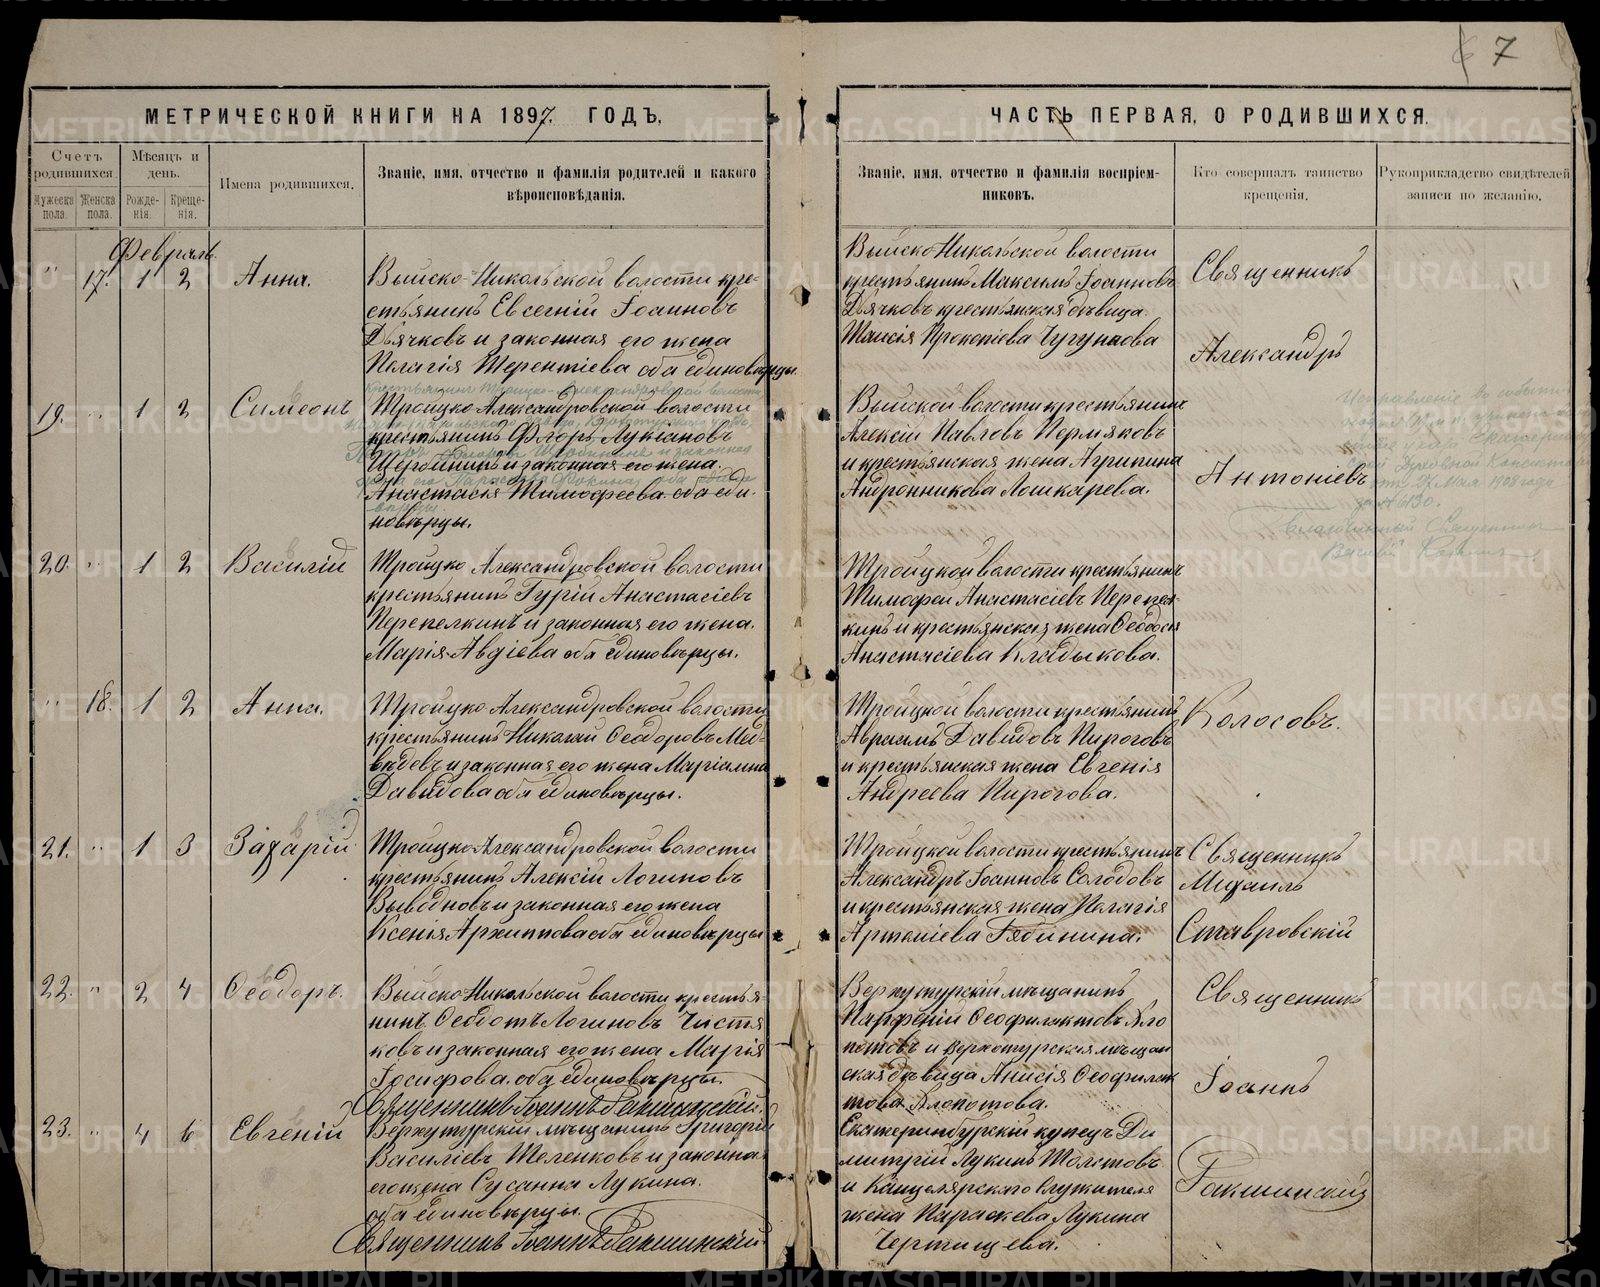 7
МЕТРИЧЕСКОЙ КНИГИ НА 1897. ГОДЪ,
ЧАСТЬ ПЕРВАЯ, О РОДИВШИХСЯ.
Счетъ родившихся.
Мужеска пола.
Женска пола.
Мѣсяцъ и день.
Рожде-
нія.
Креще-
нія.
Имена родившихся.
Званіе, имя, отчество и фамилія родителей и какого
вѣроисповѣданія.
Званіе, имя, отчество и фамилія воспріем-
никовъ.
Кто совершалъ таинство
крещенія.
Рукоприкладство свидѣтелей
записи по желанію.
Февраль.
" 17. 1 2 Анна.
Выйско-Никольской волости кре-
стьянинъ Евсегній Іоанновъ
Дьячковъ и законная его жена
Пелагія Терентіева оба единовѣрцы.
Выйско-Никольской волости
крестьянинъ Максимъ Іоанновъ
Дьячковъ крестьянская дѣвица
Таисія Прокопіева Чугунова
Священникъ
Александръ
19. " 1 2 Симеонъ
Троицко-Александровской волости
крестьянинъ Флоръ Лукіановъ
и законная его жена
Анастасія Тимофеева оба еди-
новѣрцы.
Выйской волости крестьянинъ
Алексій Павловъ Пермяковъ
и крестьянская жена Агрипина
Андронникова Лошкарева.
Антоніевъ
Исправленіе
Духовной
27 Мая 1908 года
за № 6130.
Священникъ
20. " 1 2 Василій
Троицко Александровской волости
крестьянинъ Гурій Анастасіевъ
Перепелкинъ и законная его жена
Марія Авдіева оба единовѣрцы.
Троицкой волости крестьянинъ
Тимофей Анастасіевъ Перепел-
кинъ и крестьянская жена Ѳеодосія
Анастасіева Кладыкова.
" 18. 1 2 Анна.
Троицко Александровской волости
крестьянинъ Николай Ѳеодоровъ Мед-
вѣдевъ и законная его жена Маріамна
Давидова оба единовѣрцы.
Троицкой волости крестьянинъ
Авраамъ Давидовъ Пироговъ
и крестьянская жена Евгенія
Андреева Пирогова.
Колосовъ.
21. " 1 3 Захарій
Троицко Александровской волости
крестьянинъ Алексій Логиновъ
и законная его жена
Ксенія Архиппова оба единовѣрцы
Троицкой волости крестьянинъ
Александръ Іоанновъ Солодовъ
и крестьянская жена Пелагія
Артеміева Рябинина.
Священникъ
Михаилъ
Ставровскій
22. " 2 4 Ѳеодоръ.
Выйско Никольской волости крестья-
нинъ Ѳеодотъ Логиновъ Чистя
ковъ и законная его жена Марія
Іосифова оба единовѣрцы.
Священникъ Іоаннъ Гакшинскій.
Верхотурскій мѣщанинъ
Парфеній Ѳеофилактовъ Хло
потовъ и Верхотурская мѣщан
ская дѣвица Анисія Ѳеофилак
това Хлопотова.
Священникъ
Іоаннъ
23. " 4 6 Евгеній
Верхотурскій мѣщанинъ Григорій
Василіевъ Теленковъ и законная
его жена Сусанна Лукина
оба единовѣрцы.
Священникъ Іоаннъ Гакшинскій.
Екатеринбургскій купецъ Ди
митрій Лукинъ Толстовъ
и Канцелярскаго служителя
жена Параскева Лукина
Чертищева.
Гакшинскій